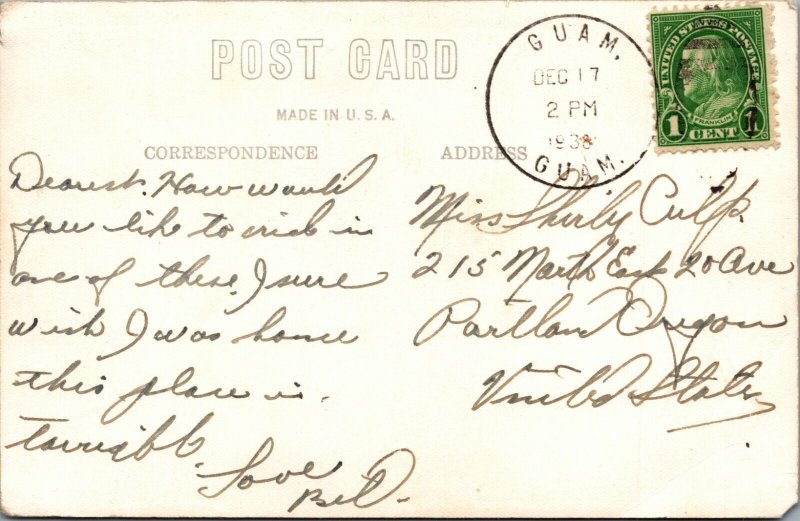 POST CARD
MADE IN U.S.A.
CORRESPONDENCE
ADDRESS
GUAM.
DEC 17
2 PM
1938
GUAM.
UNITED STATES POSTAGE
FRANKLIN
1 CENT 1
Dearest. How would
you like to ride in
one of these. I sure
wish I was home
this place is.
terrible
Love
Bill.
Miss Shirly Culp.
215 North East 20 Ave
Portland Oregon
United States